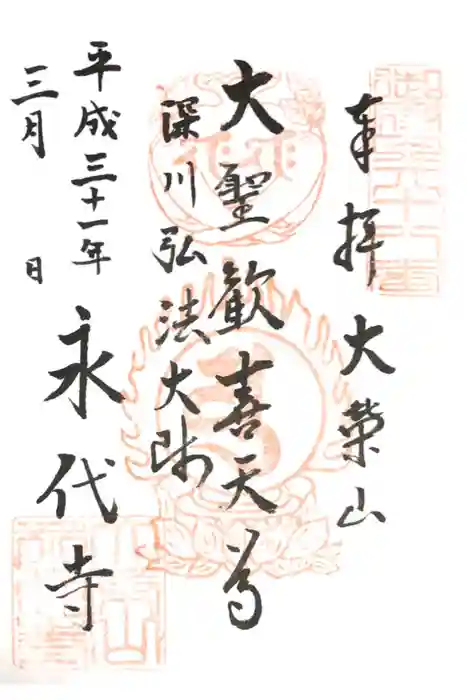 奉拝 大榮山
大聖歓喜天尊
深川弘法大師
平成三十一年
三月 日
永代寺